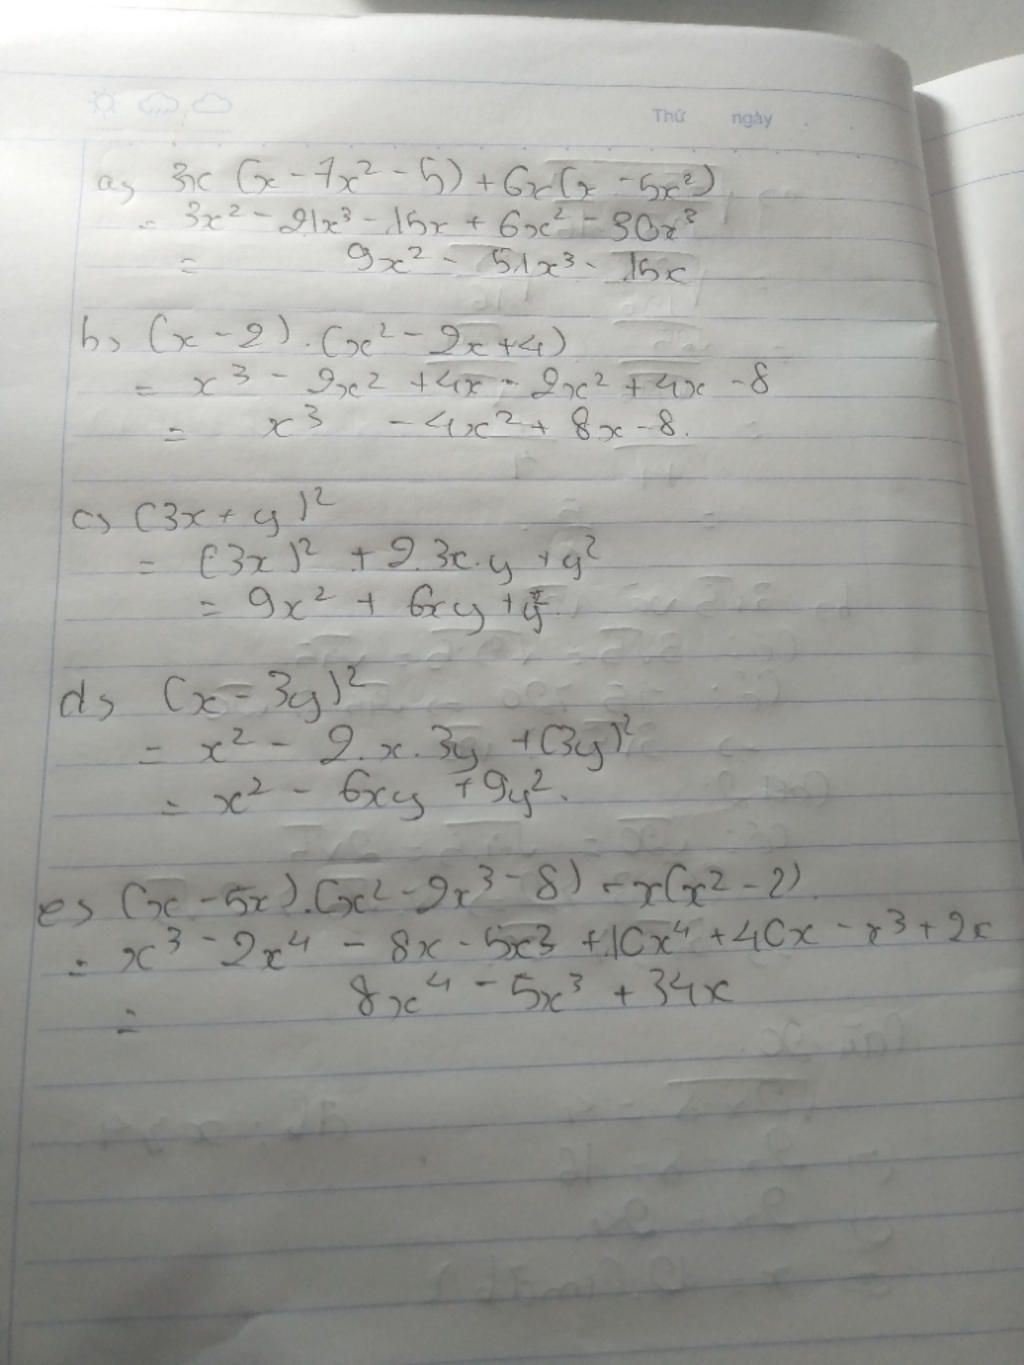 Thứ ngày
a, 3x (x - 7x² - 5) + 6x(x - 5x²)
= 3x² - 21x³ - 15x + 6x² - 30x³
= 9x² - 51x³ - 15x
b, (x - 2) . (x² - 2x + 4)
= x³ - 2x² + 4x - 2x² + 4x - 8
= x³ - 4x² + 8x - 8.
c, (3x + y)²
= (3x)² + 2.3x.y + y²
= 9x² + 6xy + y².
d, (x - 3y)²
= x² - 2.x.3y + (3y)²
= x² - 6xy + 9y².
e, (x - 5x).(x² - 2x³ - 8) - x(x² - 2).
= x³ - 2x⁴ - 8x - 5x³ + 10x⁴ + 40x - x³ + 2x
= 8x⁴ - 5x³ + 34x